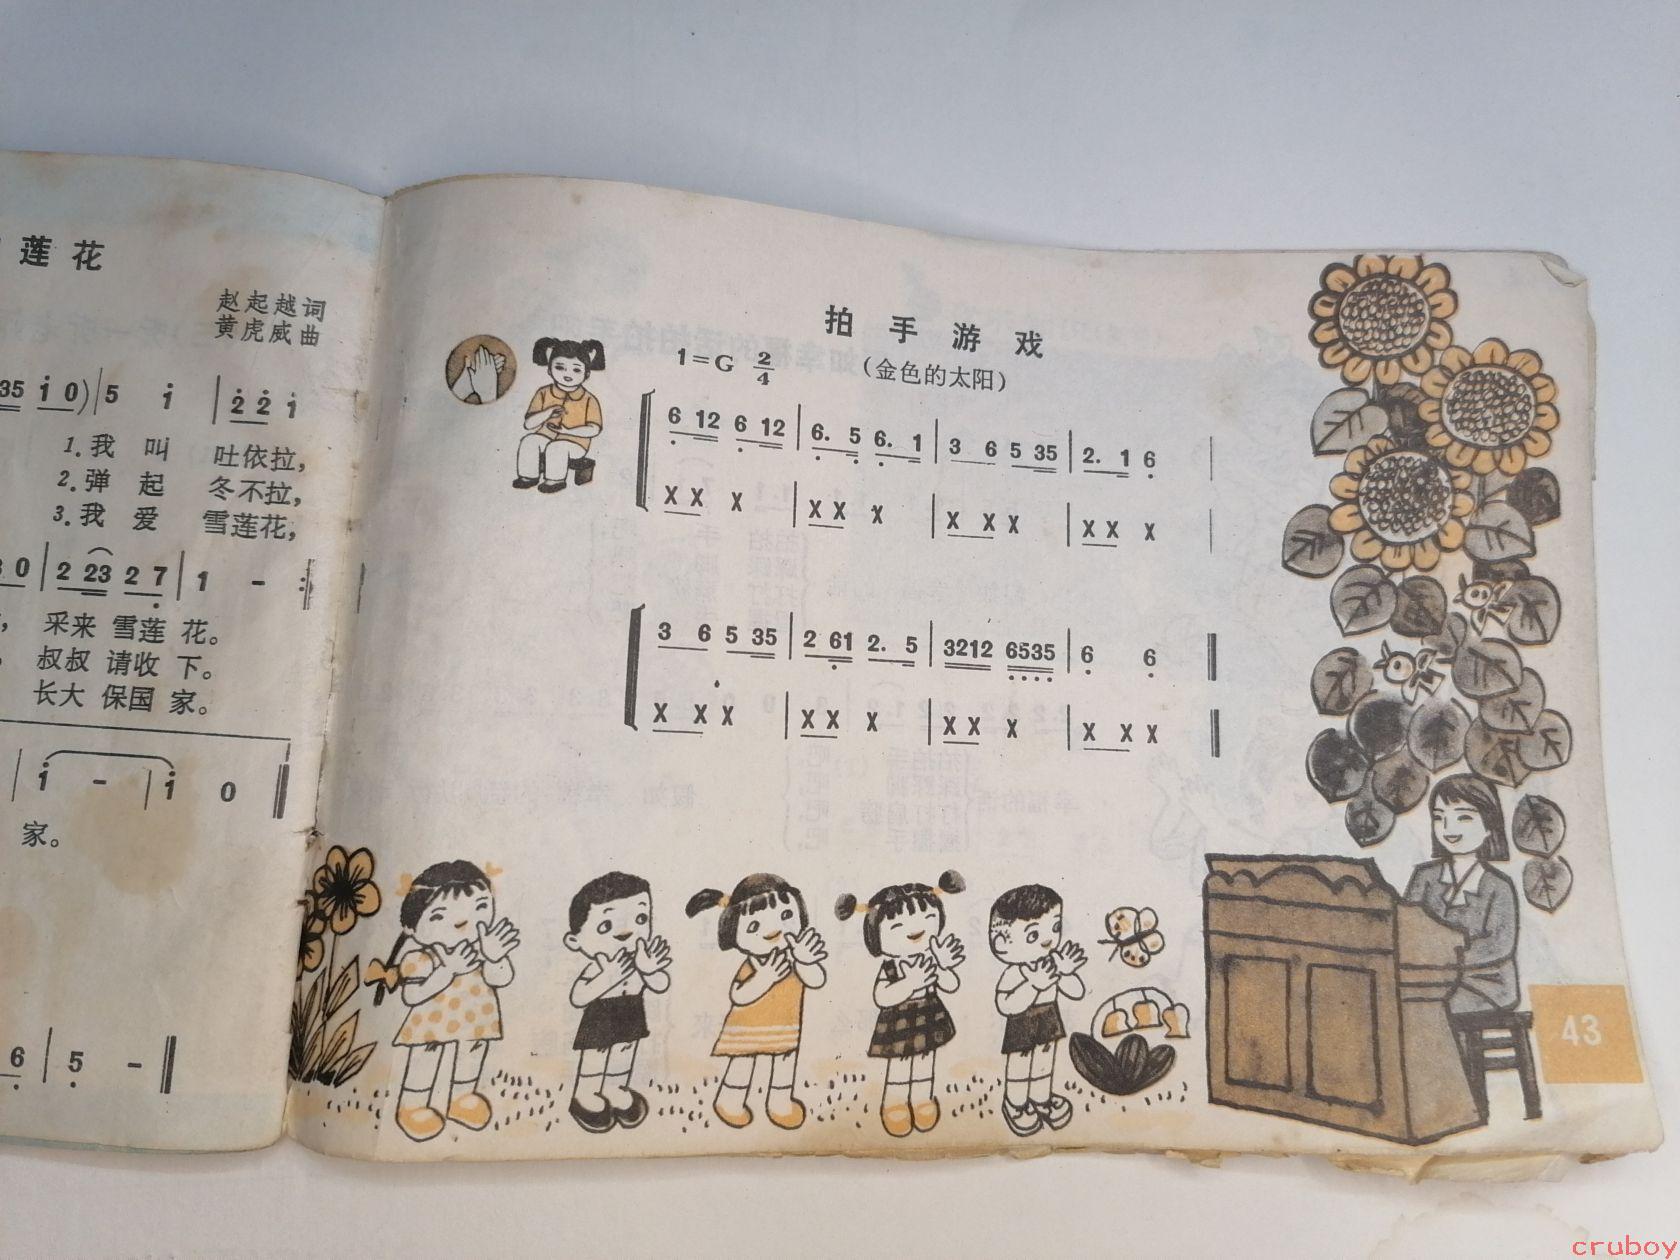 莲花
赵起越词
黄虎威曲
35 1 0) | 5 1 | 2 2 1
1.我 叫 吐依拉,
2.弹 起 冬不拉,
3.我 爱 雪莲花,
3 0 | 2 23 2 7 | 1 - :
采来 雪莲 花。
叔叔 请收 下。
长大 保国 家。
| 1 - | 1 0
家。
6 | 5 -
拍手游戏
1=G 2/4
(金色的太阳)
6 12 6 12 | 6. 5 6. 1 | 3 6 5 35 | 2. 1 6 |
X X X | X X X | X X X | X X X |
3 6 5 35 | 2 61 2. 5 | 3212 6535 | 6 6
X X X | X X X | X X X | X X X
43
cruboy